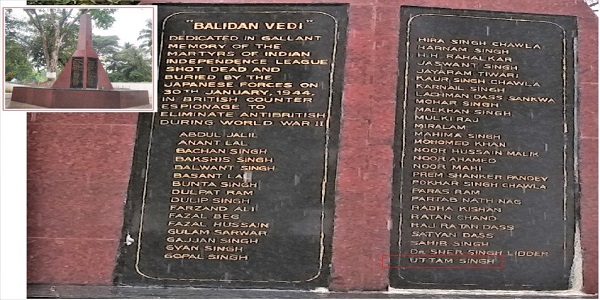 "BALIDAN VEDI"
DEDICATED IN GALLANT
MEMORY OF THE
MARTYRS OF INDIAN
INDEPENDENCE LEAGUE
SHOT DEAD AND
BURIED BY THE
JAPANESE FORCES ON
30TH JANUARY, 1944
IN BRITISH COUNTER
ESPIONAGE TO
ELIMINATE ANTIBRITISH
DURING WORLD WAR II
ABDUL JALIL
ANANT LAL
BACHAN SINGH
BAKSHIS SINGH
BALWANT SINGH
BASANT LAL
BUNTA SINGH
DULPAT RAM
DULIP SINGH
FARZAND ALI
FAZAL BEG
FAZAL HUSSAIN
GULAM SARWAR
GAJJAN SINGH
GYAN SINGH
GOPAL SINGH
HIRA SINGH CHAWLA
HARNAM SINGH
H.H. RAHALKAR
JASWANT SINGH
JAYARAM TIWARI
KAUR SINGH CHAWLA
KARNAIL SINGH
LACHMAN DASS SANKWA
MOHAR SINGH
MALKHAN SINGH
MULKI RAJ
MIRALAM
MAHIMA SINGH
MOHOMED KHAN
NOOR HUSSAIN MALIK
NOOR AHAMED
NOOR MAHI
PREM SHANKER PANDEY
POKHAR SINGH CHAWLA
PARAS RAM
PARTAB NATH NAG
RADHA KISHAN
RATAN CHAND
RAJ RATAN DASS
SATYAN DASS
SAHIB SINGH
DR SHER SINGH LIDDER
UTTAM SINGH